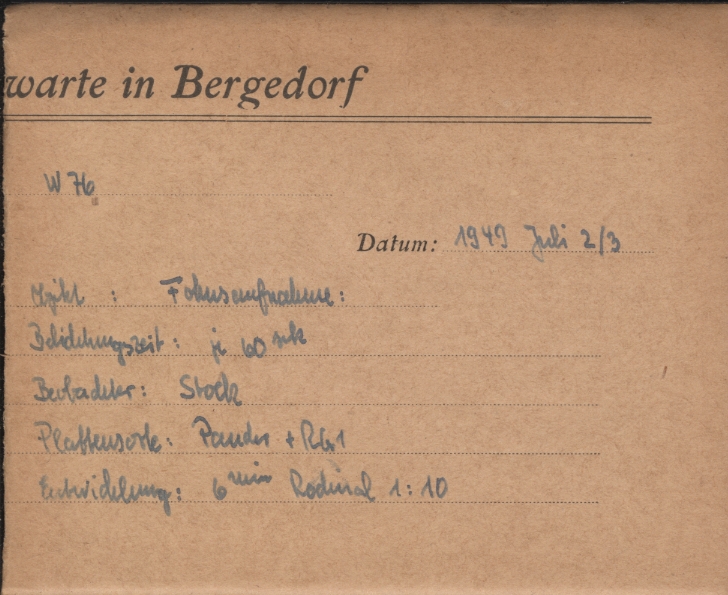 warte in Bergedorf
W 76
Datum: 1949 Juli 2/3
Objekt : Fokusaufnahme:
Belichtungszeit : je 60 sek
Beobachter: Stock
Plattensorte: + RG1
Entwicklung: 6 min Rodinal 1:10